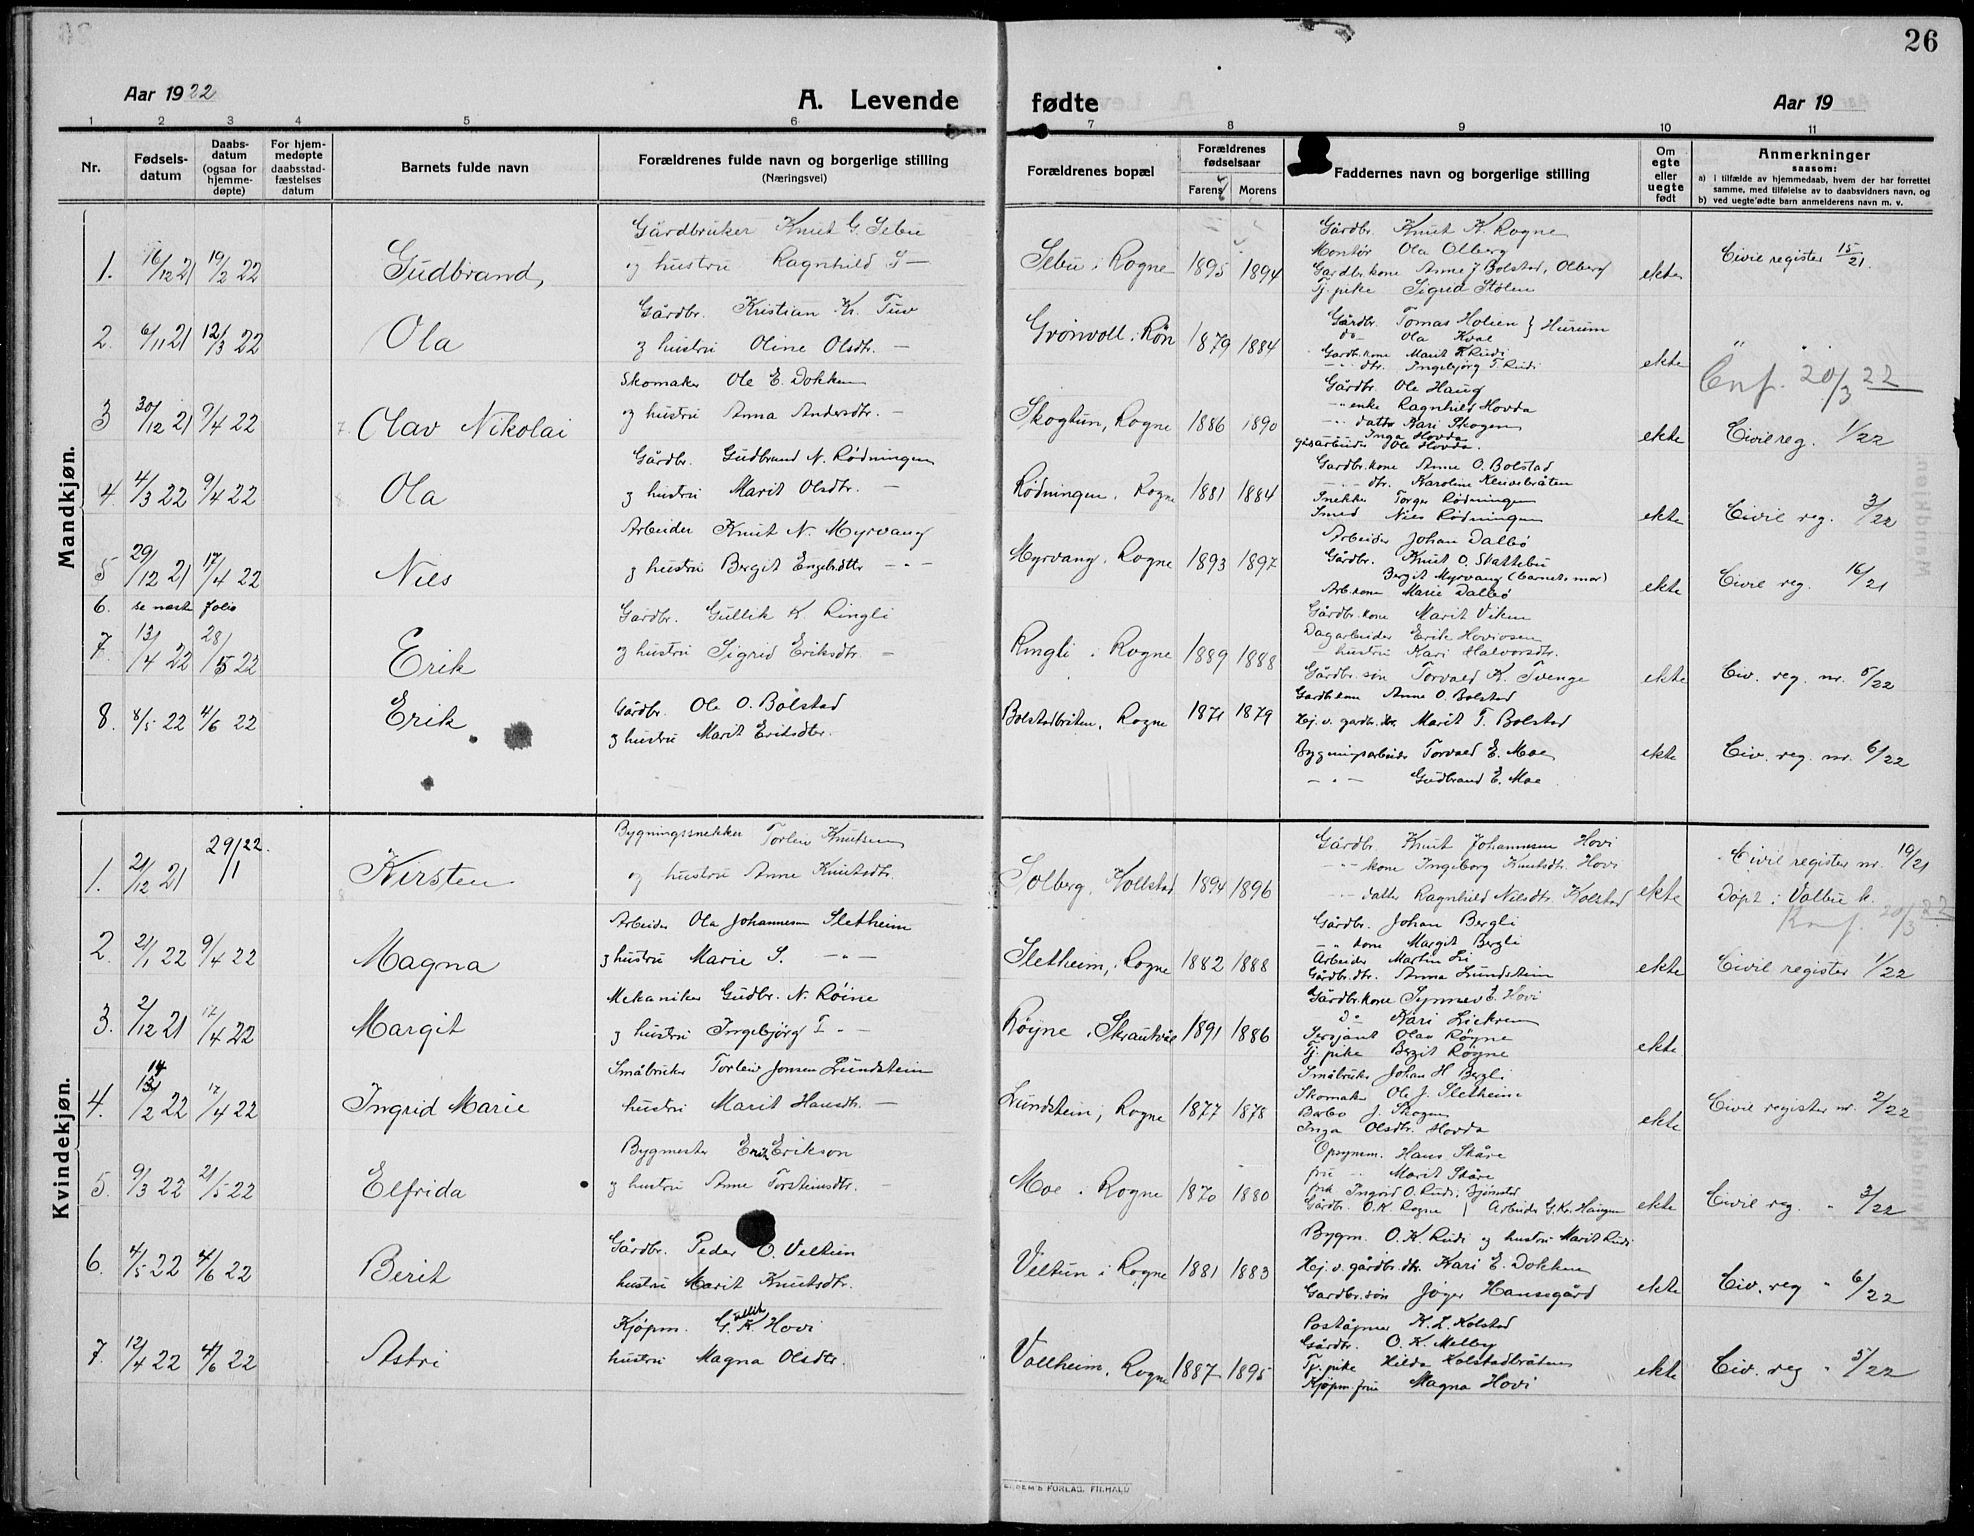 26
Aar 1922
A. Levende fødte
Aar 19
1 2 3 4 5 6 7 8 9 10 11
Nr.
Fødsels-datum
Daabs-datum (ogsaa for hjemme-døpte)
For hjem-medøpte daabsstad-fæstelses datum
Barnets fulde navn
Forældrenes fulde navn og borgerlige stilling (Næringsvei)
Forældrenes bopæl
Forældrenes fødselsaar
Farens Morens
Faddernes navn og borgerlige stilling
Om egte eller uegte født
Anmerkninger
saasom:
a) i tilfælde av hjemmedaab, hvem der har forrettet samme, med tilføielse av to daabsvidners navn, og
b) ved uegte fødte barn anmelderens navn m. v.
Mandkjøn.
1. 16/12 21 19/2 22 Gudbrand
Gårdbruker Knut G. Sebu
og hustru Ragnhild S —
Sebu i Rogne 1895 1894
Gårdbr. Knut K. Rogne
Montør Ola Olberg
Gardbr.kone Anne J. Bolstad, Olberg
Tj. pike Sigrid Stølen
ekte
Civil register 15/21.
2. 6/11 21 12/3 22 Ola
Gårdbr. Kristian Kr. Tuv
og hustru Oline Olsdtr. —
Grønvoll i Røn 1879 1884
Gårdbr. Tomas Holien } Hurum
do Ola Kvale
Gardbr.kone Marit T. Rudi
— " — dtr. Ingebjørg T. Rudi
ekte
" "
Conf. 20/3 22
3 30/12 21 9/4 22 Olav Nikolai
Skomaker Ole E. Dokken
og hustru Anna Andersdtr. —
Skogtun, Rogne 1886 1890
Gårdbr. Ole Haug
— " enke Ragnhild Hovda
— " — datter Kari Skogen
Inga Hovda
Ole Hovda.
ekte
Civil reg. 1/22
4 4/3 22 9/4 22 Ola
Gårdbr. Gudbrand N. Rødningen
og hustru Marit Olsdtr. —
Rødningen, Rogne 1881 1884
Gardbr.kone Anne O. Bolstad
— " — dtr. Karoline Kleivebråten
Snekker Torger Rødningen
Smed Nils Rødningen
ekte
Civil reg. 3/22
5 29/12 21 17/4 22 Nils
Arbeider Knut N. Myrvang
og hustru Bergit Engebrdtr — " —
Myrvang, Rogne 1893 1897
Arbeider Johan Dalbø
Gårdbr. Knut O. Skattebu
Bergit Myrvang (barnets mor)
Arb.kone Marie Dalbø
ekte
Civil reg. 16/21
6. se næste folio
7. 13/4 22 28/5 22 Erik
Gardbr. Gullik K. Ringli
og hustru Sigrid Eriksdtr. —
Ringli i Rogne 1889 1888
Gårdbr. kone Marit Viken
Dagarbeider Erik Hoviosen
— hustru Kari Halvorsdtr.
Gårdbr. søn Torvald K. Tvenge
ekte
Civ. reg. nr. 5/22
8. 8/5 22 4/6 22 Erik
Gårdbr. Ole O. Bolstad
og hustru Marit Eriksdtr.
Bolstadbråten, Rogne 1871 1879
Gardbr.kone Anne O. Bolstad
Hj. v. gardbr. dtr. Marit T. Bolstad
Bygningsarbeider Torvald E. Moe
— " — Gudbrand E. Moe
ekte
Civ. reg. nr. 6/22
Kvindekjøn.
1. 21/12 21 29/1 22. Kirsten
Bygningssnekker Torleiv Knutsen
og hustru Anne Knutsdtr.
Solberg, Kollstad 1894 1896
Gårdbr. Knut Johannesen Hovi
— " — kone Ingeborg Knutsdtr. Hovi
— " — datter Ragnhild Nilsdtr. Kolstad
ekte
Civil register nr. 19/21
Døpt i Volbu k.
Konf. 20/3 22
2. 21/1 22 9/4 22 Magna
Arbeider Ola Johannesen Sletheim
og hustru Marie S. — " —
Sletheim, Rogne 1882 1888
Gårdbr. Johan Bergli
— " — kone Margit Bergli
Arbeider Martin Li
Gårdbr.dtr. Anna Lundstein
ekte
Civil register 1/22
3. 2/12 21 17/4 22 Margit
Mekaniker Gudbr. N. Røine
og hustru Ingebjørg I " —
Røyne i Skrautvål 1891 1886
Gårdbr.kone Synnev E. Hovi
do Kari Liekren
Sersjant Olav Røyne
Tj. pike Bergit Røyne
ekte
4. 14/2 22 17/4 22 Ingrid Marie
Småbruker Torleiv Jonsen Lundstein
hustru Marit Hansdtr. —
Lundstein, Rogne 1877 1878
Småbruker Johan H Bergli
Skomaker Ole J. Sletheim
Barbo J. Skogen
Inga Olsdtr. Hovda
ekte
Civil register nr. 2/22
5. 9/3 22 21/5 22 Elfrida
Bygmester Erik Erikson
og hustru Anne Torsteinsdtr. —
Moe i Rogne 1870 1880
Opsynsm. Hans Skåre
fru " Marit Skåre
frk Ingrid O. Rudi,
Gårdbr. O. K. Rogne / Arbeider G. Kr. Haugen
ekte
Civil reg. " 3/22
6. 4/5 22 4/6 22 Berit
Gårdbr. Peder O. Veltun
hustru Marit Knutsdtr.
Veltun i Rogne 1881 1883
Bygm. O. K. Rudi og hustru Marit Rudi
Hj. v. gårdbr. dtr. Kari E. Dokken
Gardbr. søn Jøger Hansegård
ekte
Civ. reg " 6/22
7. 12/4 22 4/6 22 Astri
Kjøpm. Gullik K. Hovi
hustru Magna Olsdtr.
Vollheim, Rogne 1887 1895
Poståpner K. L. Kolstad
Gårdbr. O. K. Melby
Tj. pike Hilda Kolstadbråten
Kjøpm. frue Magna Hovi
ekte
Civ. reg " 5/22